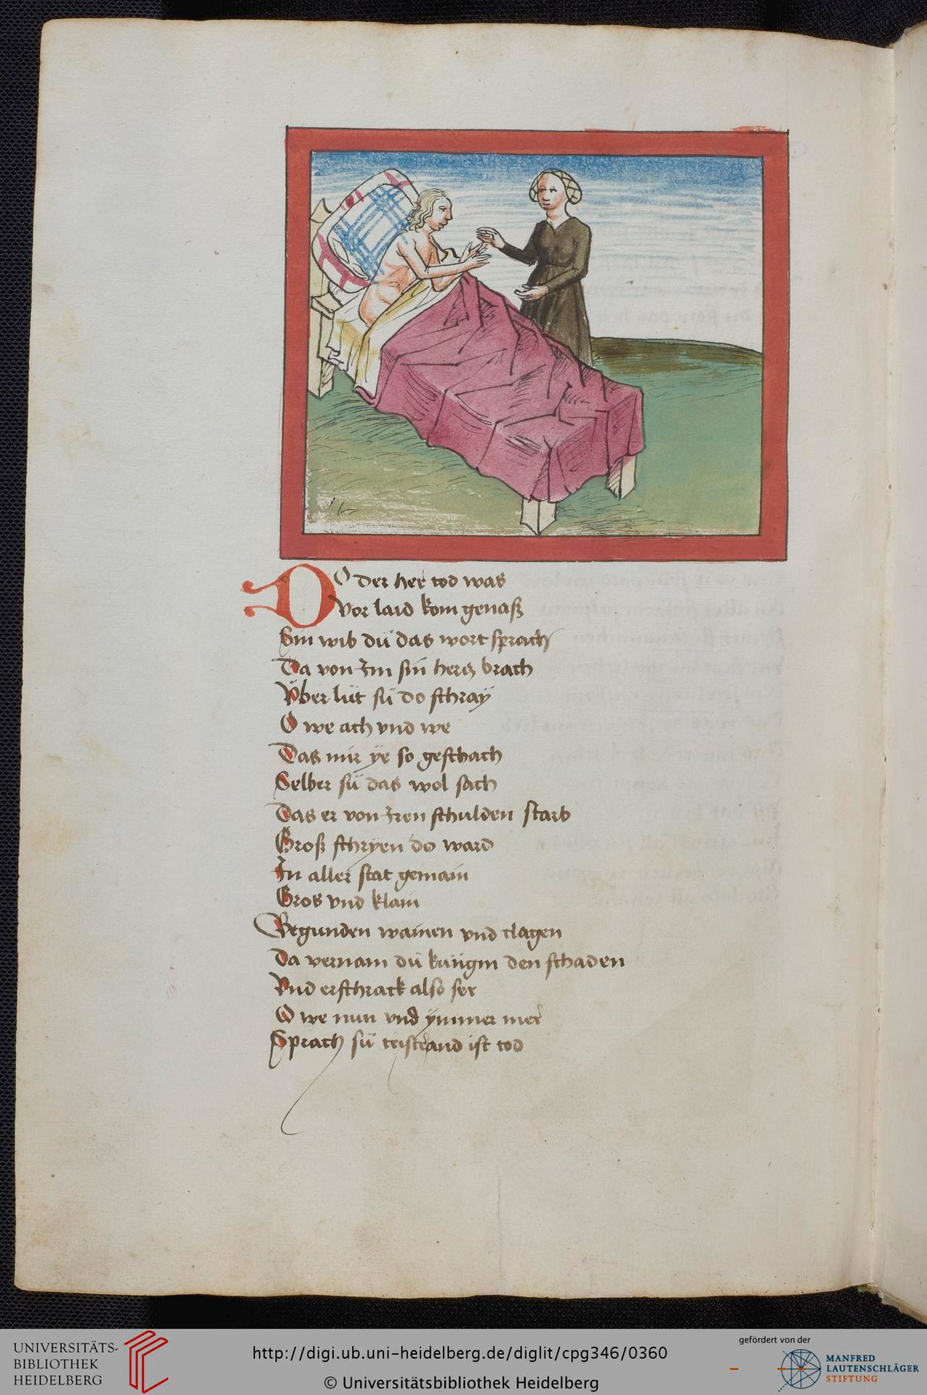 DO der her tod was
Vor laid kom genaß
Sin wib dü das wort sprach
Da von Im sin hercz brach
Vber lüt sü do schray
O we ach vnd we
Das mir ye so geschach
Selber sü das wol sach
Das er von Iren schulden starb
Groß schryen do ward
In aller stat gemain
Gros vnd klain
Begunden wainen vnd clagen
Da vernam dü küngin den schaden
Vnd erschrack also ser
O we nun vnd ymmer mer
Sprach sü tristrand ist tod
UNIVERSITÄTS-
BIBLIOTHEK
HEIDELBERG
http://digi.ub.uni-heidelberg.de/diglit/cpg346/0360
© Universitätsbibliothek Heidelberg
gefördert von der
MANFRED
LAUTENSCHLÄGER
STIFTUNG